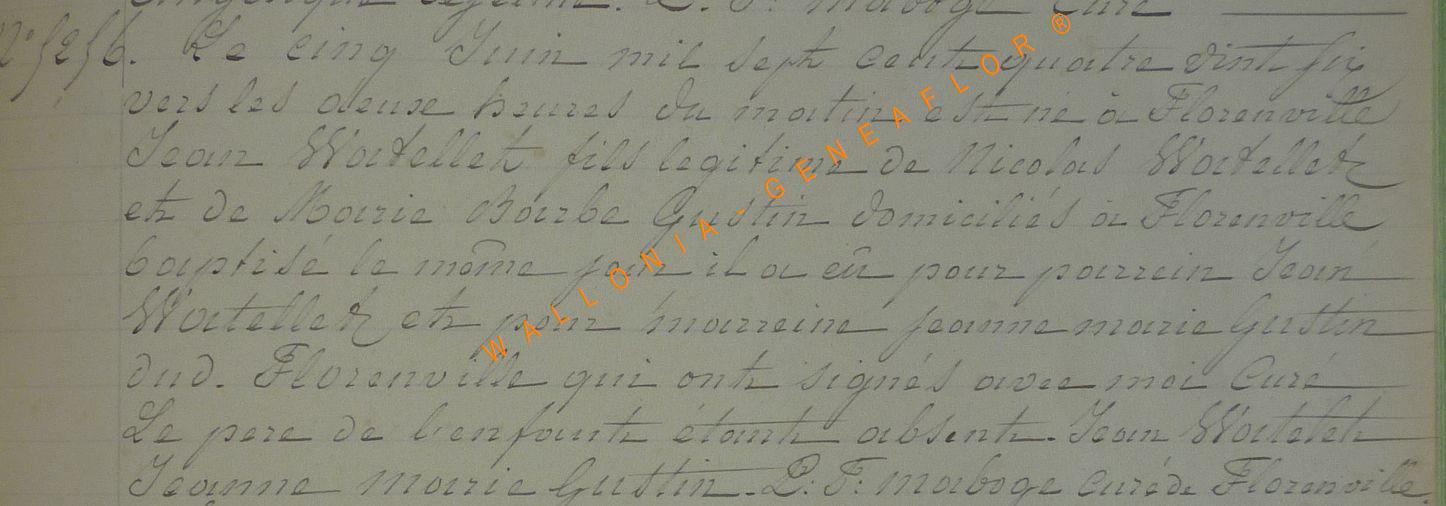 Curé
N° 5256. Le cinq Juin mil sept cent quatre vint six
vers les deux heures du matin est né à Florenville
Jean Watellet fils legitime de Nicolas Watellet
et de Marie Barbe Gustin domiciliés à Florenville
baptisé le même jour il a eû pour parrein Jean
Watellet et pour marreine jeanne marie Gustin
dud. Florenville qui ont signés avec moi Curé
Le pere de l'enfant étant absent. Jean Watelet
Jeanne marie Gustin. P. F: maboge curé de Florenville.
WALLONIA-GENEAFLOR®